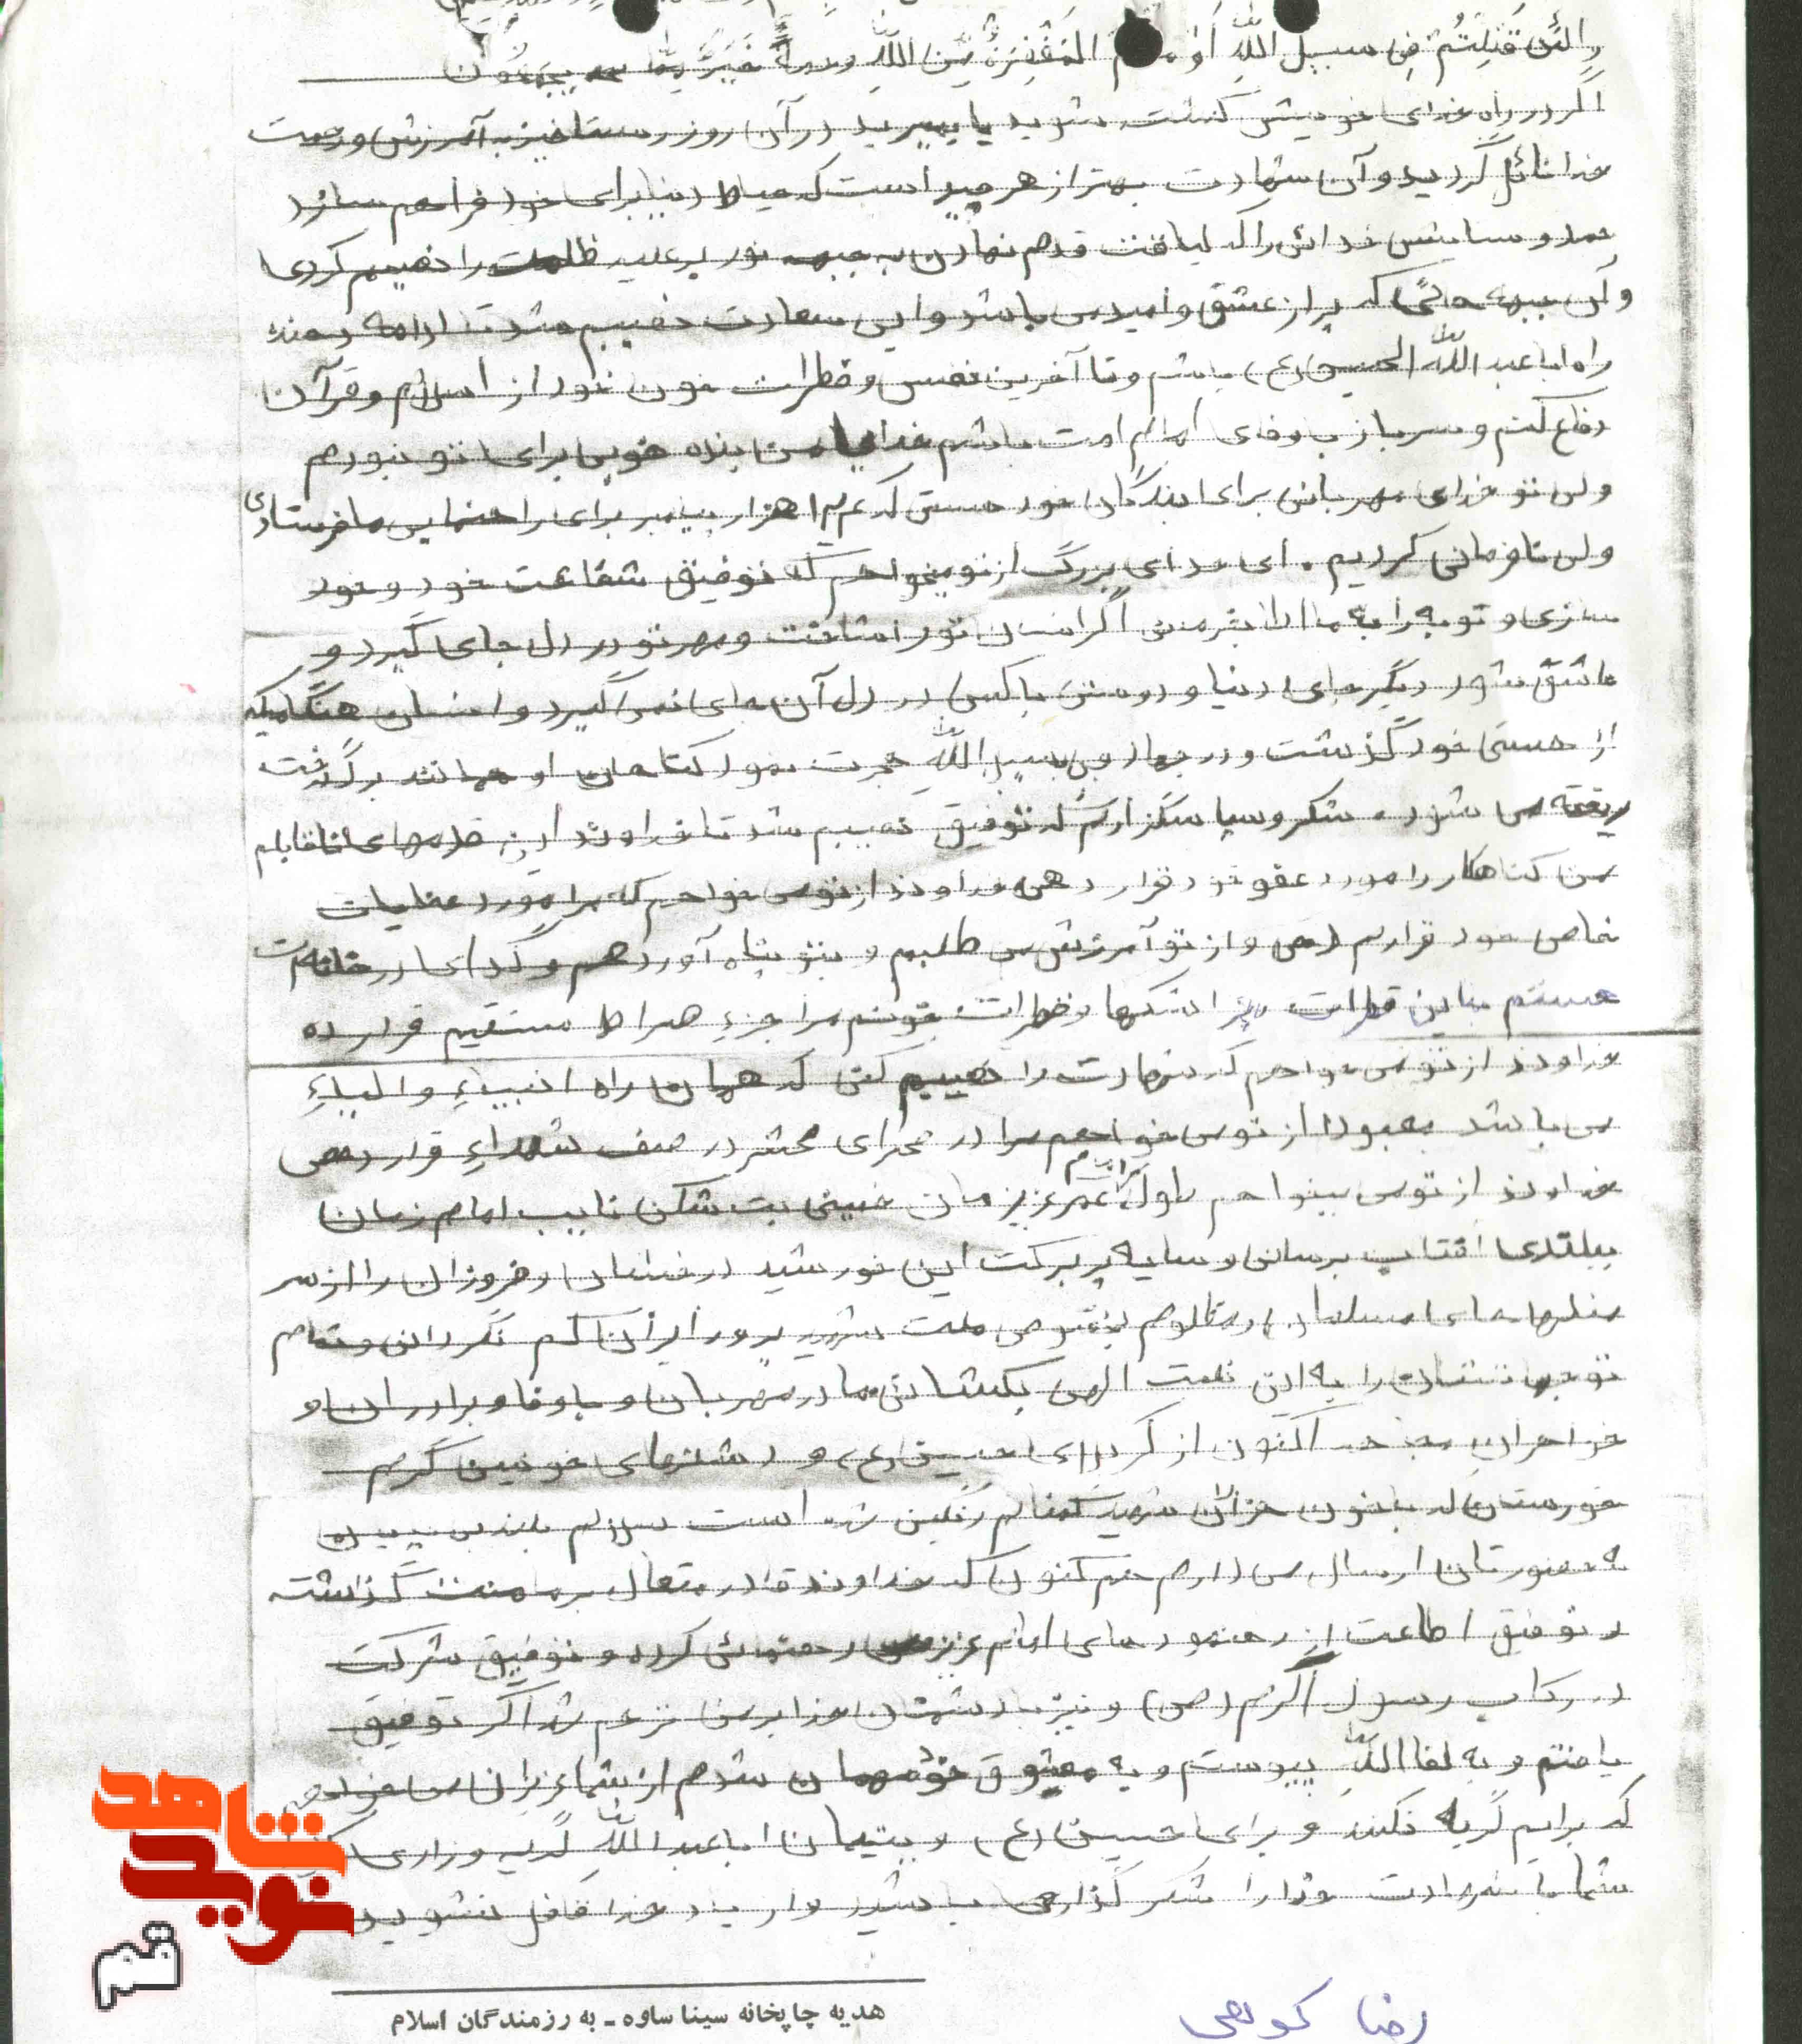 وَلَئِن قُتِلتُم فِی سبیل اللهِ أَو المَغْفِرَةٌ مِّنَ اللهِ ورحمةٌ خَیرٌ مِمّا یجمعُون
اگر در راه خدای خویش کشته شوید یا بمیرید در آن روز رستاخیز به آمرزش و رحمت
خدا نائل گردیدو آن شهادت بهتر از هر چیز است که حیاط دنیا برای خود فراهم سازد
حمد و ستایش خدائی را که لیاقت قدم نهادن به جبهه نور بر علیه ظلمت را نصیبم کردی
و آن جبهه حقی که پر از عشق و امید می باشد و این سعادت نصیبم شد تا ادامه دهنده
راه ابا عبد الله الحسین (ع) باشم و تا آخرین نفس و قطرات خون خود از اسلام و قرآن
دفاع کنم و سرباز با وفای امام امت باشم خدایا من بنده خوبی برای تو نبودم
ولی تو خدای مهربانی برای بندگان خود هستی که ۱۲۴ هزار پیامبر برای راهنمایی ما فرستادی
ولی نافرمانی کردیم . ای خدای بزرگ از تو میخواهم که توفیق شفاعت خود و خود
سازی و توبه را به ما اگر انسان تو را شناخت و مهر تو در دل جای گیرد و
عاشق شود دیگر جای دنیا و دوستی با کسی در دل آن جای نمی گیرد و انسان هنگامیکه
از هستی خود گذشت و در جهاد فی سبیل الله هجرت نمود گناهان او همانند برگ درخت
ریخته می شود . شکر و سپاسگزارم که توفیق نصیبم شد تا خداوند این قدمهای ناقابل
من گناهکار را مورد عفو خود قرار دهی خداوندا از تو می خواهم که مرا مورد عنایات
خاص خود قرارم دهی و از تو آمرزش می طلبم و بتو پناه آورده ام و گدای در خانه ات
هستم با این قطرات اشکها و قطرات خونم مرا جزء صراط مستقیم قرار ده
خداوندا از تو می خواهم که شهادت را نصیبم کنی که همان راه انبیاء و اولیاء
می باشد معبودا از تو می خواهم مرا در صحرای محشر در صف شهداء قرار دهی
خداوندا از تو می خواهم طول عمر امام عزیزمان خمینی بت شکن نایب امام زمان
ببلندی آفتاب برسان و سایه پر برکت این خورشید درخشان و فروزان را از سر
ملتهای مسلمان و مظلوم بخصوص ملت شهید پرور ایران کم نگردان و تمام
توجهاتتان را به این نعمت الهی بکشانید مادر مهربان و باوفا و برادران و
خواهران اکنون از کربلای حسین (ع) و دشتهای خونین گرم
خوزستان که با خون هزاران شهید گلگون رنگین شده است سلام
به حضورتان ارسال می دارم هم اکنون که خداوند قادر متعال بر ما منت گذاشته
و توفیق اطاعت از رهنمودهای امام عزیزمان را عطا کرده و توفیق شرکت
در رکاب رسول اکرم (ص) و نبرد با دشمنان خدا بر من شد اگر توفیق
یافتم و به لقا الله پیوستم و به معشوق خود مهمان شدم از شما عزیزان می خواهم
که برایم گریه نکنید و برای حسین (ع) و یتیمان ابا عبد الله گریه و زاری کنید
شما با شهادت خدا را شکر گذاری باشید و از یاد خدا غافل نشوید
رضا کوهی
هدیه چاپخانه سینا ساوه ـ به رزمندگان اسلام
نوید شاهد
قم